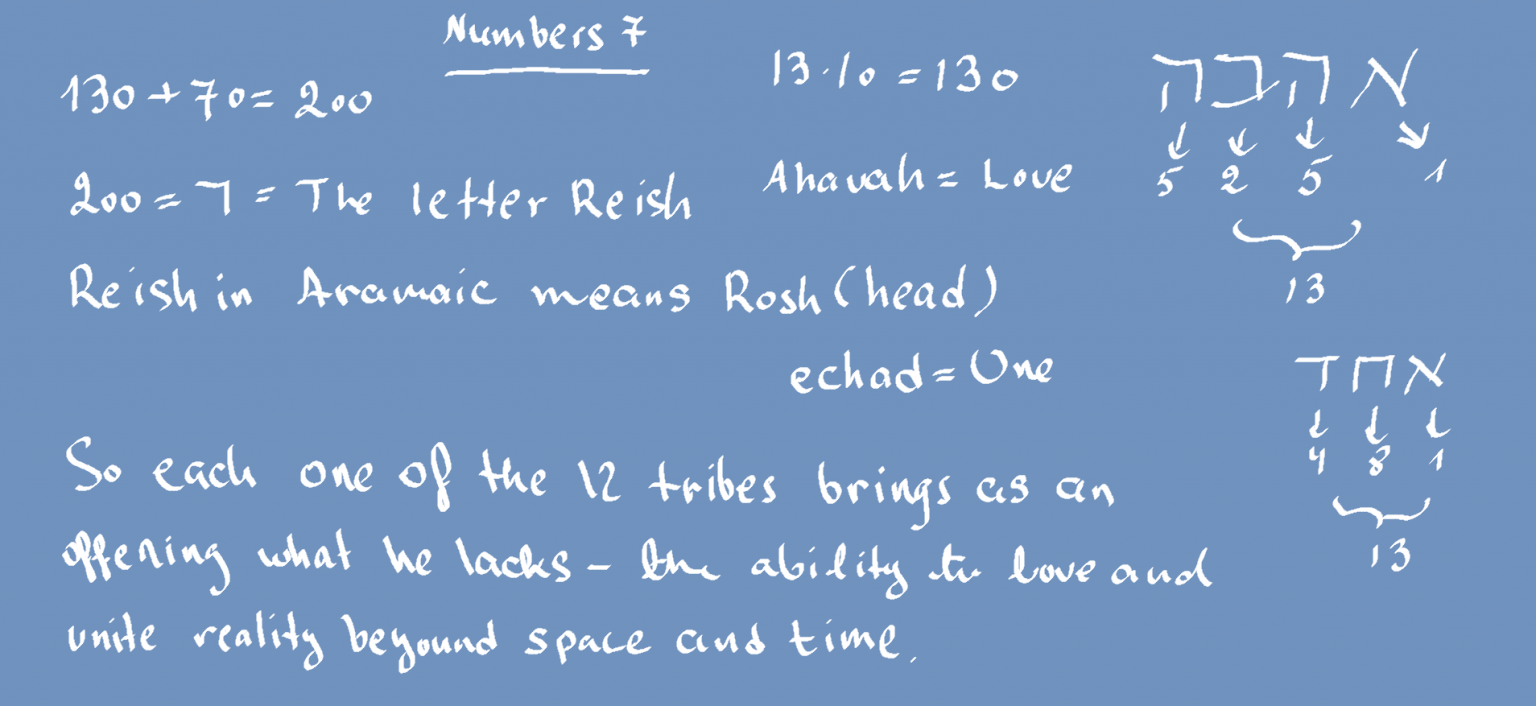 Numbers 7
130+70=200
13·10=130
אהבה
5 2 5 1
13
200=ר=The letter Reish
Ahavah=Love
Reish in Aramaic means Rosh (head)
echad=One
אחד
4 8 1
13
So each one of the 12 tribes brings as an
offering what he lacks - the ability to love and
unite reality beyound space and time.